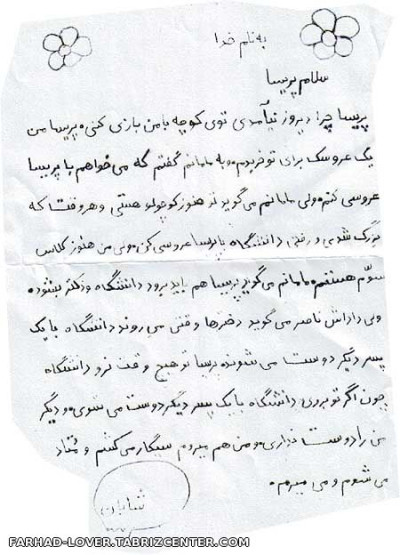 به نام خدا
سلام پریسا
پریسا چرا دیروز نیآمدی توی کوچه با من بازی کنی. پریسا من
یک عروسک برای تو خریدم. به مامانم گفتم که می خواهم با پریسا
عروسی کنم ولی مامانم می گوید تو هنوز کوچولو هستی و هر وقت که
بزرگ شدی و رفتی دانشگاه با پریسا عروسی کن. ولی من هنوز کلاس
سوّم هستم. مامانم می گوید پریسا هم باید برود دانشگاه و دکتر بشود.
ولی داداش ناصر می گوید دخترها وقتی می روند دانشگاه با یک
پسر دیگر دوست می شوند. پریسا تو هیچ وقت نرو دانشگاه
چون اگر تو بروی دانشگاه با یک پسر دیگر دوست می شوی. و دیگر
من را دوست نداری. و من هم میروم سیگار می کشم و مُتاد
می شوم و می میرم.
شایان
FARHAD-LOVER.TABRIZCENTER.COM